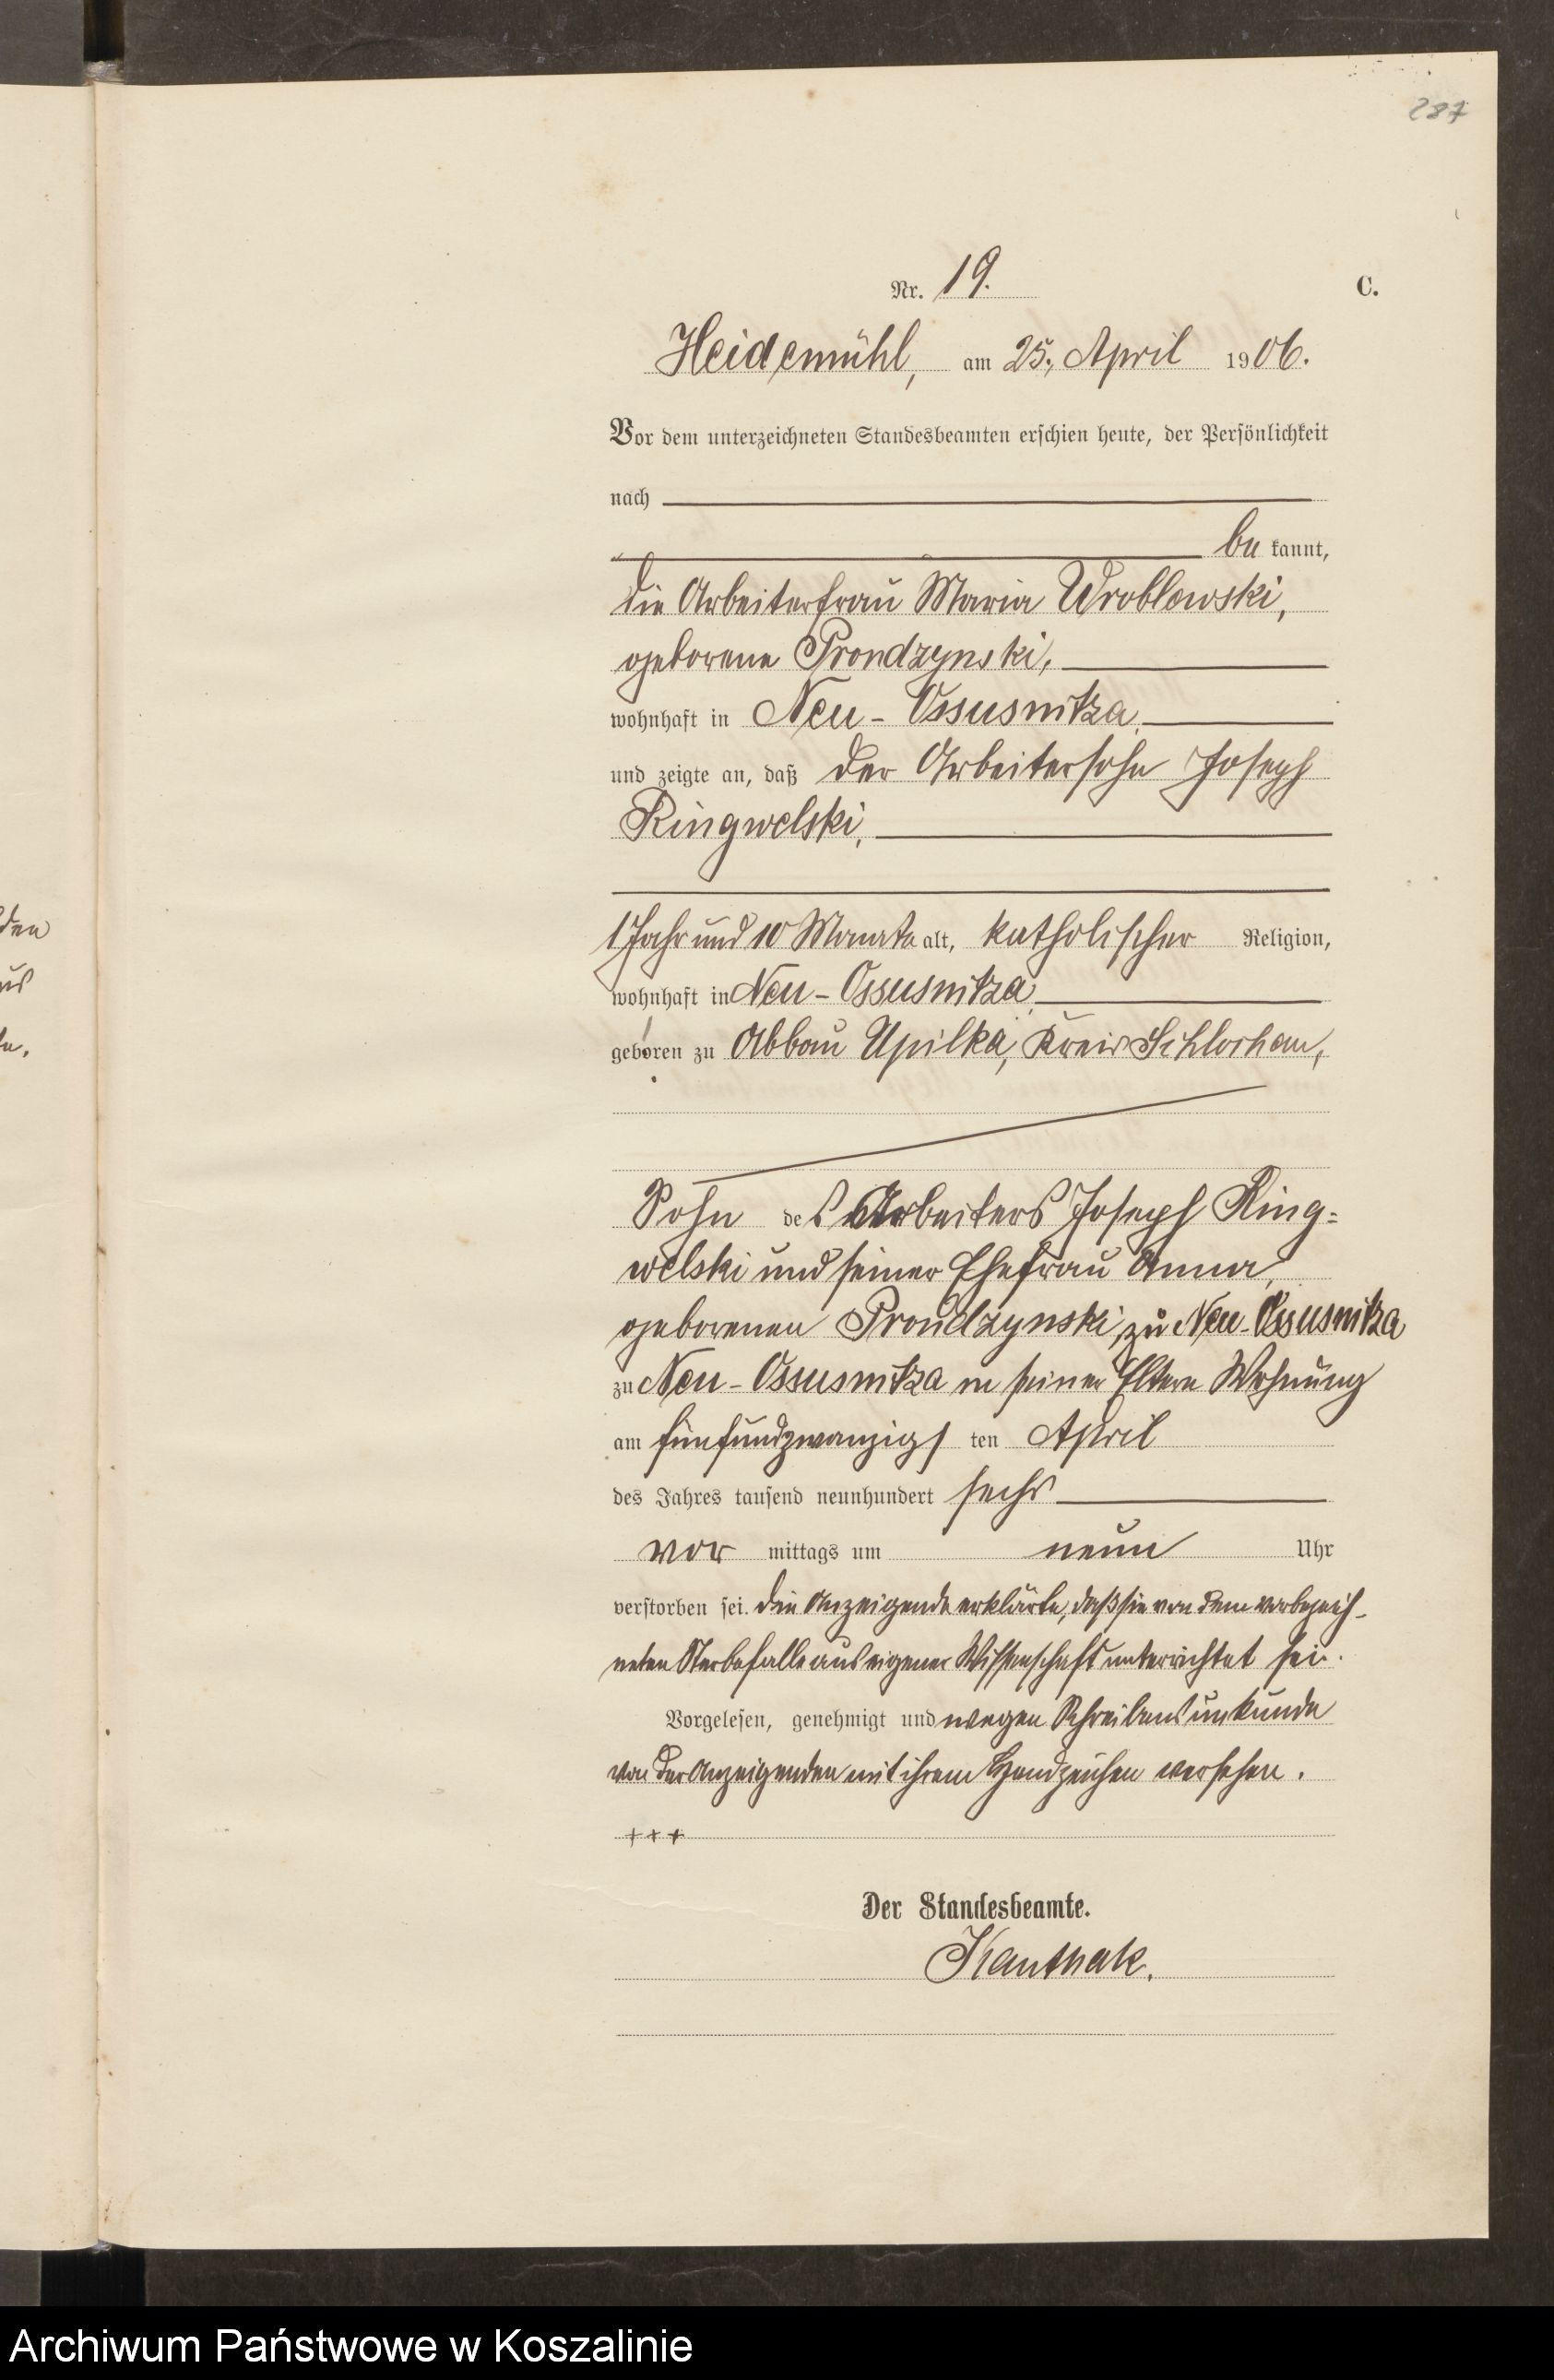 287
Nr. 19.
C.
Heidemühl, am 25. April 1906.
Vor dem unterzeichneten Standesbeamten erschien heute, der Persönlichkeit
nach
be kannt,
die Arbeiterfrau Maria Wroblowski,
geborene Prondzynski,
wohnhaft in Neu-Ossusnitza,
und zeigte an, daß der Arbeitersohn Joseph
Ringwelski,
1 Jahr und 10 Monate alt, katholischer Religion,
wohnhaft in Neu-Ossusnitza,
geboren zu Abbau Upilka, Kreis Schlochau,
Sohn des Arbeiters Joseph Ring=
welski und seiner Ehefrau Anna,
geborenen Prondzynski, zu Neu-Ossusnitza
zu Neu-Ossusnitza in seiner Eltern Wohnung
am fünfundzwanzigsten April
des Jahres tausend neunhundert sechs
vor mittags um neun Uhr
verstorben sei. Die Anzeigende erklärte, daß sie von dem vorbezeich-
neten Sterbefalle aus eigener Wissenschaft unterrichtet sei.
Vorgelesen, genehmigt und wegen Schreibensunkunde
von der Anzeigenden mit ihrem Handzeichen versehen.
+++
Der Standesbeamte.
Kanthak.
den
Archiwum Państwowe w Koszalinie